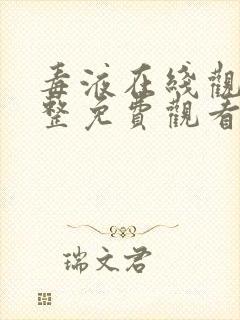 毒液在綫觀
整免費觀看
瑞文君